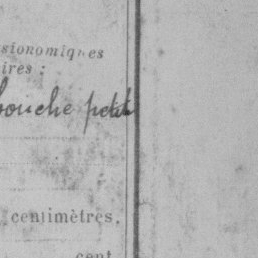 sionomiques
ires :
bouche petite
centimètres.
cent